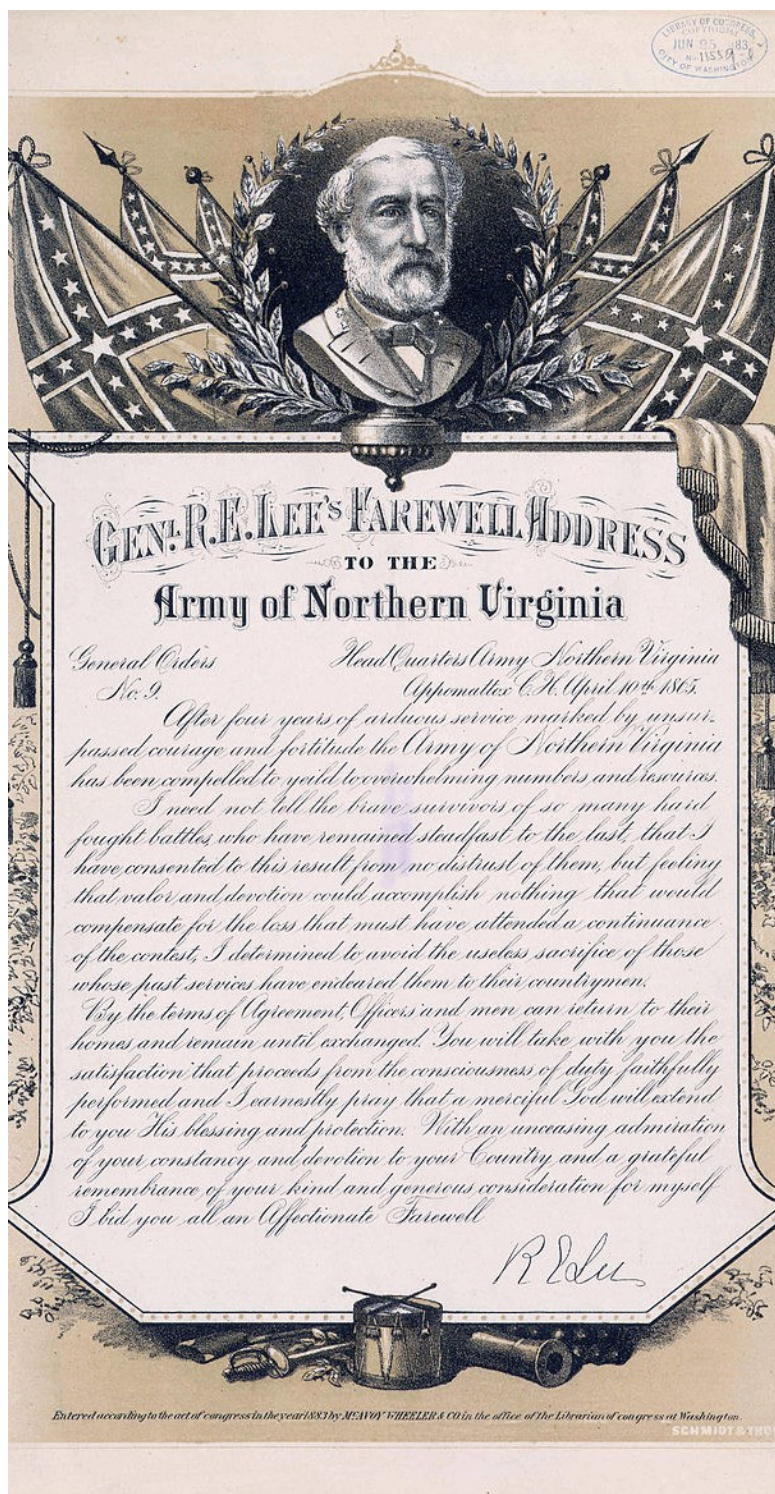 LIBRARY OF CONGRESS
COPYRIGHT
JUN 25 1883
No 11559
CITY OF WASHINGTON
GENL. R. E. LEE'S FAREWELL ADDRESS
TO THE
Army of Northern Virginia
General Orders Head Quarters Army Northern Virginia
No. 9. Appomattox C. H. April 10th 1865.
After four years of arduous service marked by unsur-
passed courage and fortitude the Army of Northern Virginia
has been compelled to yeild to overwhelming numbers and resources.
I need not tell the brave survivors of so many hard
fought battles, who have remained steadfast to the last, that I
have consented to this result from no distrust of them, but feeling
that valor and devotion could accomplish nothing that would
compensate for the loss that must have attended a continuance
of the contest, I determined to avoid the useless sacrifice of those
whose past services have endeared them to their countrymen.
By the terms of Agreement, Officers and men can return to their
homes and remain until exchanged. You will take with you the
satisfaction that proceeds from the consciousness of duty faithfully
performed and I earnestly pray that a merciful God will extend
to you His blessing and protection. With an unceasing admiration
of your constancy and devotion to your Country and a grateful
remembrance of your kind and generous consideration for myself
I bid you all an Affectionate Farewell
R E Lee
Entered according to the act of congress in the year 1883 by McAVOY WHEELER & CO. in the office of the Librarian of congress at Washington.
SCHMIDT &